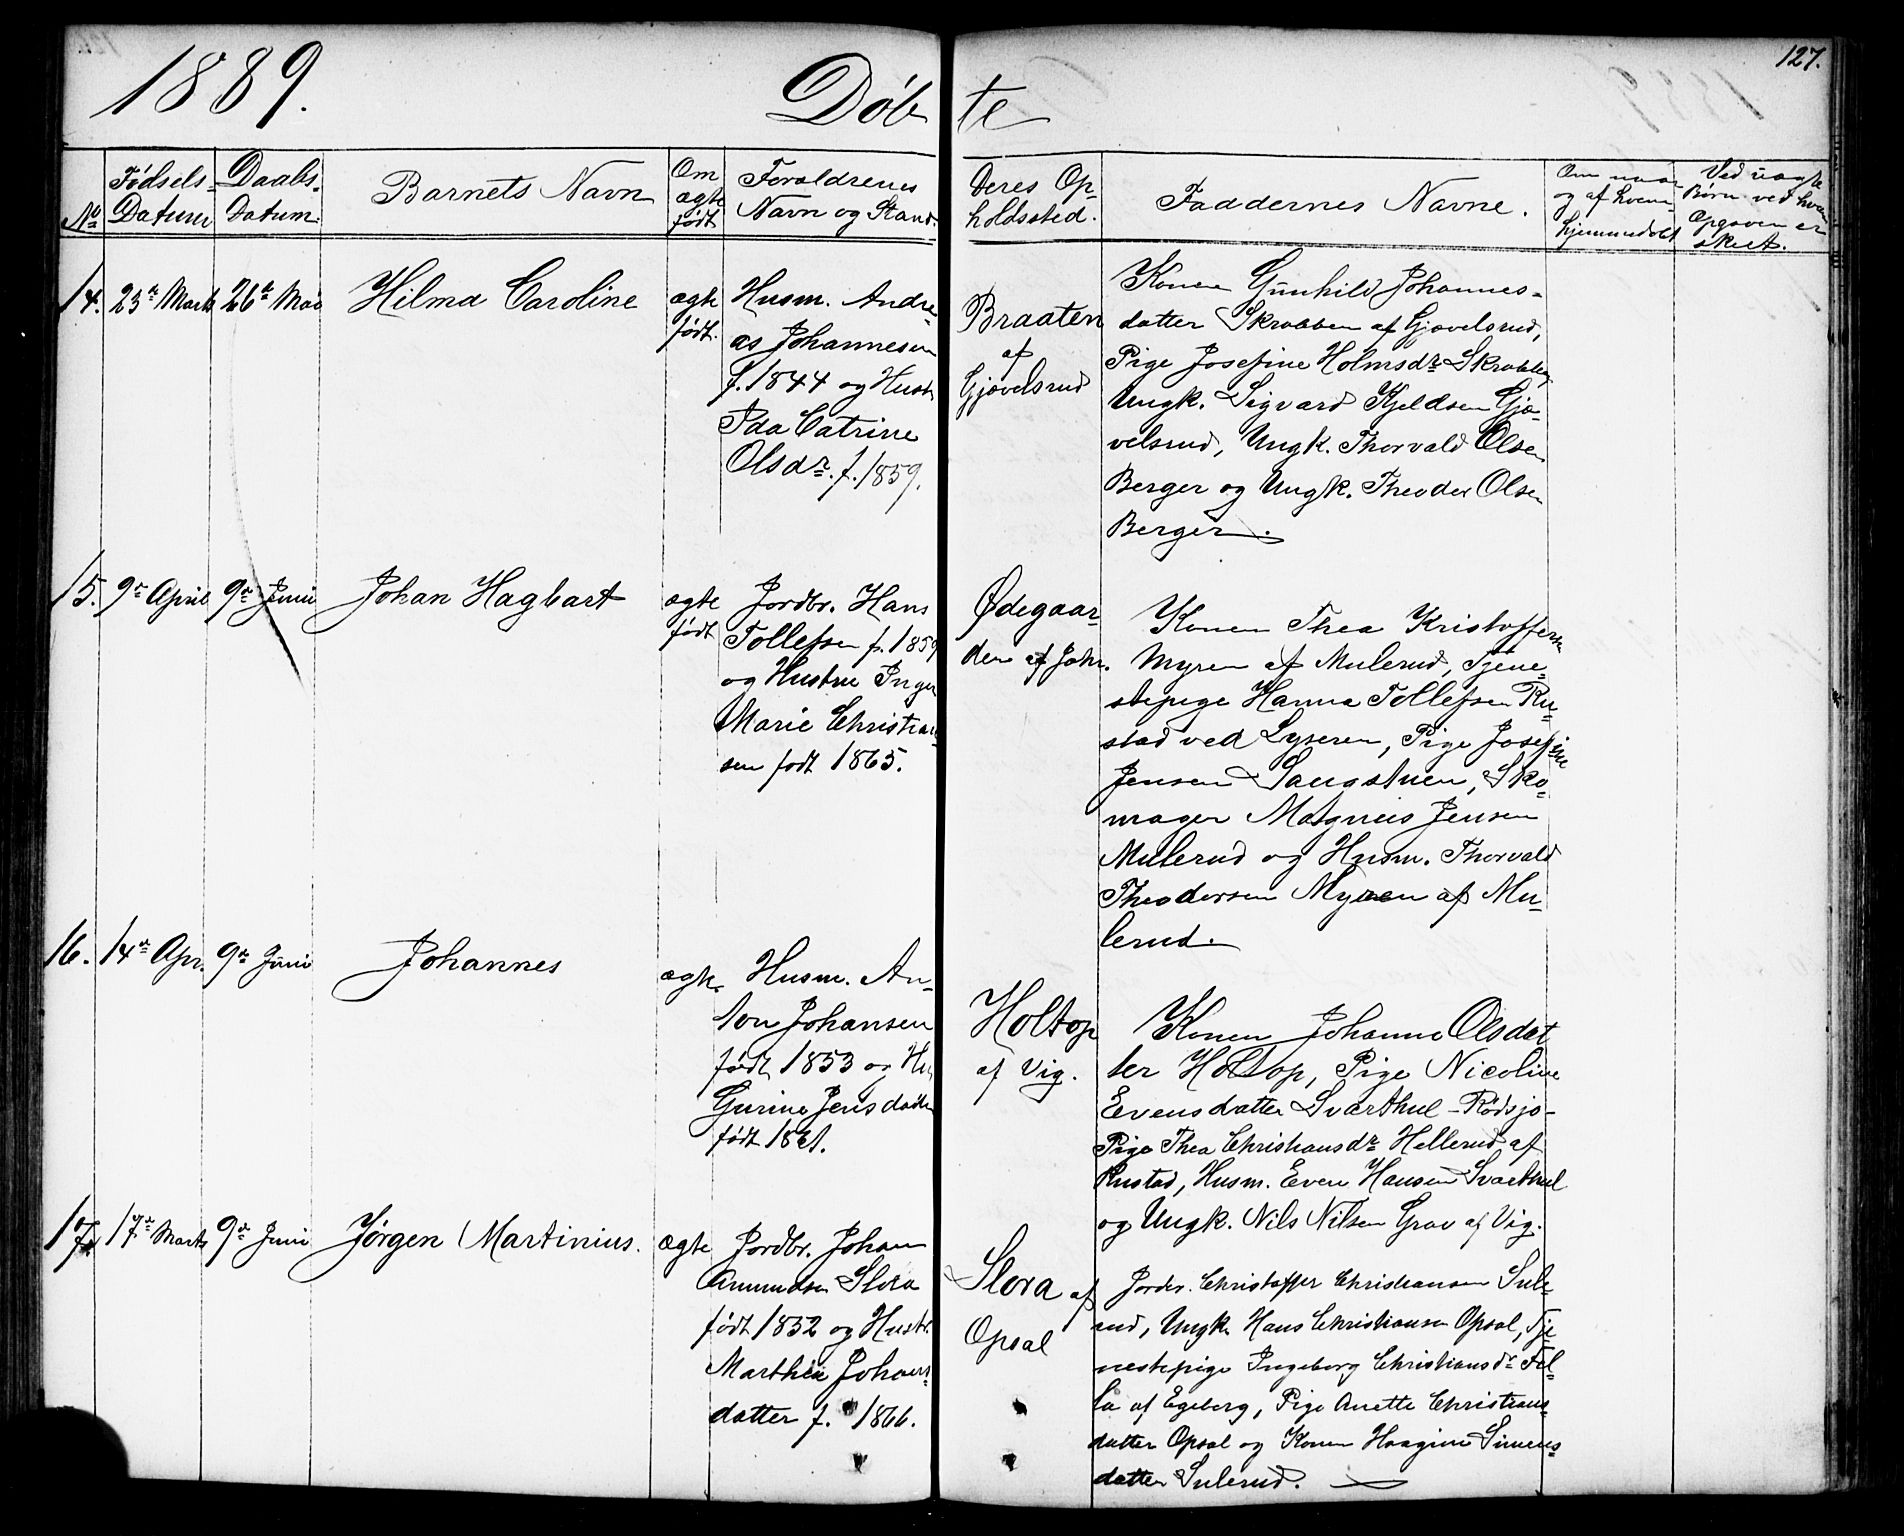 127.
1889.
Døbte
No
Fødsels-
Datum
Daabs-
Datum.
Barnets Navn
Om
ægte
født
Forældrenes
Navn og Stand.
Deres Op-
holdssted.
Faddernes Navne.
Om naar
og af hvem
hjemmedøbt
Ved uægte
Børn ved hvem
Opgaven er
skeet.
14. 23de Marts 26de Mai Hilma Caroline
ægte
født.
Husm. Andre-
as Johannesen
f. 1844 og Hustr.
Ida Catrine
Olsdr. f. 1859.
Braaten
af
Gjøvelsrud
Konen Gunhild Johannes-
datter Skrabben af Gjøvelsrud,
Pige Josefine Holmsdr Skrabben
Ungk. Sigvard Kjeldsen Gjø-
velsrud, Ungk. Thorvald Olsen
Berger og Ungk. Theodor Olsen
Berger.
15. 9de April 9de Juni Johan Hagbart
ægte
født
Jordbr. Hans
Tollefsen f. 1859
og Hustru Inger
Marie Christian-
sen født 1865.
Ødegaar-
den af Johr.
Konen Thea Kristoffersen
Myren af Mulerud, Tjene-
stepige Hanna Tollefsen Ru-
stad ved Lyseren, Pige Josefine
Jensen Saugstuen, Sko-
mager Magnus Jensen
Mulerud og Husm. Thorvald
Theodorsen Myren af Mu-
lerud.
16. 14de Apr. 9de Juni Johannes
ægte
Husm. An-
ton Johansen
født 1853 og Hu
Gurine Jensdatter
født
Holtop
af Vig.
Konen Johanne Olsdat
ter Holtop, Pige Nicoline
Evensdatter Svarthul - Rødsjø-
Pige Thea Christiansdr Hellerud af
Rustad, Husm. Even Hansen Svarthul
og Ungk. Nils Nilsen Grav af Vig.
17. 17de Marts 9de Juni Jørgen Martinius.
ægte
Jordbr. Johan
Amundsen Slora
født 1832 og Hustr.
Marthea Johans-
datter f. 1866.
Slora af
Opsal
Jordbr. Christoffer Christiansen Sule-
rud, Ungk. Hans Christiansen Opsal, Tje
nestepige Ingeborg Christiansdr Fel-
la af Egeberg, Pige Anette Christians-
datter Opsal og Konen Haagine Simens-
datter Sulerud.